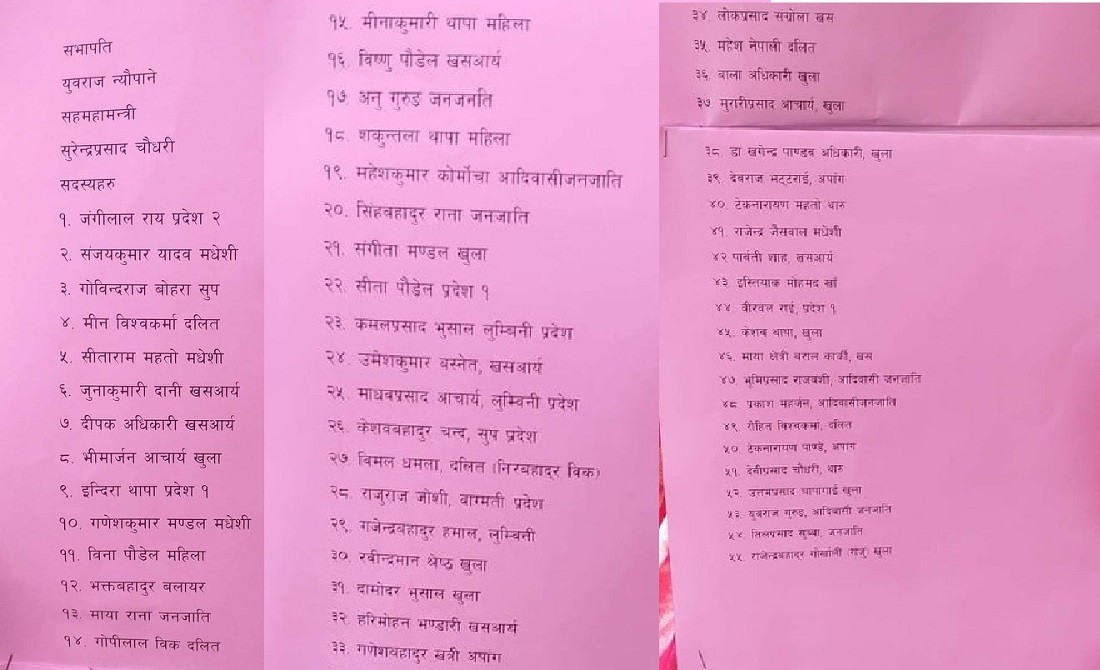 सभापति
युवराज न्यौपाने
सहमहामन्त्री
सुरेन्द्रप्रसाद चौधरी
सदस्यहरु
१. जंगीलाल राय प्रदेश २
२. संजयकुमार यादव मधेशी
३. गोविन्दराज बोहरा सुप
४. मीन विश्वकर्मा दलित
५. सीताराम महतो मधेशी
६. जुनाकुमारी दानी खसआर्य
७. दीपक अधिकारी खसआर्य
८. भीमार्जन आचार्य खुला
९. इन्दिरा थापा प्रदेश १
१०. गणेशकुमार मण्डल मधेशी
११. विना पौडेल महिला
१२. भक्तबहादुर बलायर
१३. माया राना जनजाति
१४. गोपीलाल विक दलित
१५. मीनाकुमारी थापा महिला
१६. विष्णु पौडेल खसआर्य
१७. अनु गुरुङ जनजनति
१८. शकुन्तला थापा महिला
१९. महेशकुमार कोर्मोचा आदिवासीजनजाति
२०. सिंहबहादुर राना जनजाति
२१. संगीता मण्डल खुला
२२. सीता पौडेल प्रदेश १
२३. कमलप्रसाद भुसाल लुम्बिनी प्रदेश
२४. उमेशकुमार बस्नेत, खसआर्य
२५. माधवप्रसाद आचार्य, लुम्बिनी प्रदेश
२६. केशवबहादुर चन्द, सुप प्रदेश
२७. विमल धमला, दलित (निरबहादुर विक)
२८. राजुराज जोशी, बाग्मती प्रदेश
२९. गजेन्द्रबहादुर हमाल, लुम्बिनी
३०. रवीन्द्रमान श्रेष्ठ खुला
३१. दामोदर भुसाल खुला
३२. हरिमोहन भण्डारी खसआर्य
३३. गणेशबहादुर खत्री अपांग
३४. लोकप्रसाद सग्रौला खस
३५. महेश नेपाली दलित
३६. बाला अधिकारी खुला
३७ मुरारीप्रसाद आचार्य, खुला
३८. डा खगेन्द्र पाण्डव अधिकारी, खुला
३९. देवराज भट्टराई, अपांग
४०. टेकनारायण महतो थारु
४१. राजेन्द्र जैसवाल मधेशी
४२ पार्वती शाह, खसआर्य
४३. इस्तियाक मोहमद खाँ
४४. वीरवल राई, प्रदेश १
४५. केशव थापा, खुला
४६. माया क्षेत्री बराल कार्की, खस
४७. भूमिप्रसाद राजवंशी, आदिवासी जनजाति
४८. प्रकाश महर्जन, आदिवासीजनजाति
४९. रोहित विश्वकर्मा, दलित
५०. टेकनारायण पाण्डे, अपांग
५१. देवीप्रसाद चौधरी, थारु
५२. उत्तमप्रसाद चापागाई खुला
५३. युवराज गुरुङ, आदिवासी जनजाति
५४. तिलप्रसाद सुब्बा, जनजाति
५५. राजेन्द्रबहादुर गोर्खाली (राजु) खुला